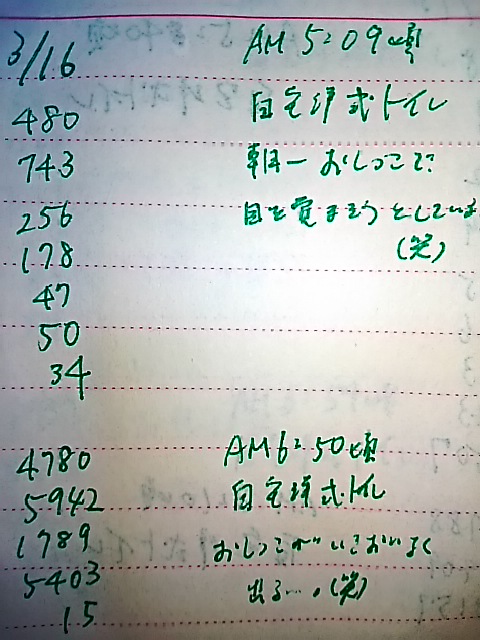 3/16 AM 5:09頃
480 自宅洋式トイレ
743 朝一おしっこで
256 目を覚まそうとしていま
178 (笑)
47
50
34
4780 AM6:50頃
5942 自宅洋式トイレ
1789 おしっこがいきおいよく
5403 出る…。(笑)
15